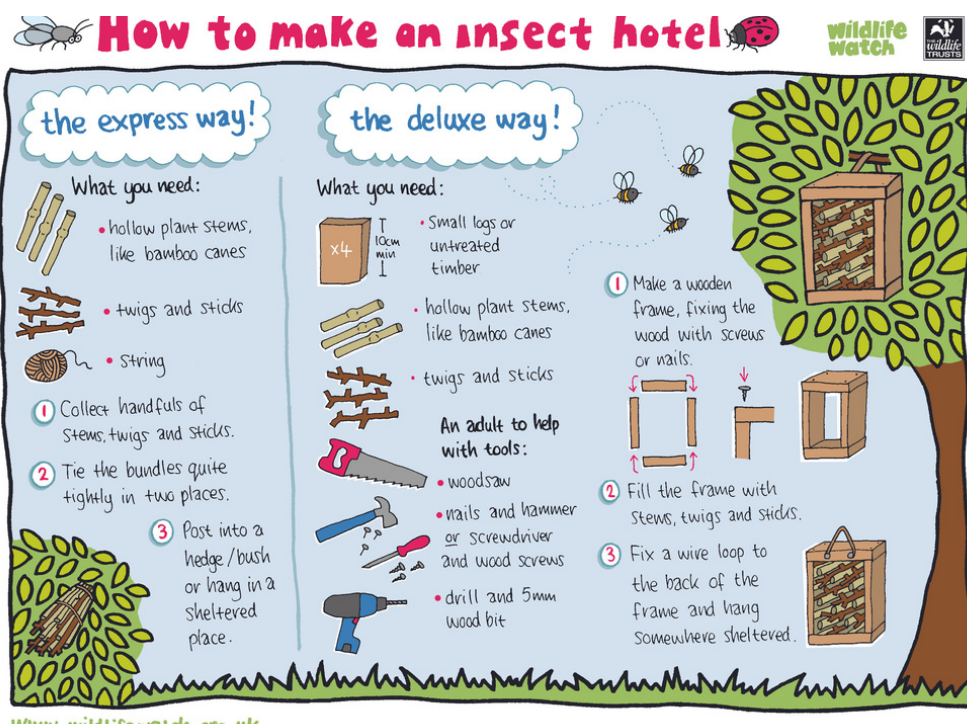 How to make an insect hotel
wildlife
watch
THE
wildlife
TRUSTS
the express way!
What you need:
• hollow plant stems,
like bamboo canes
• twigs and sticks
• string
1 Collect handfuls of
stems, twigs and sticks.
2 Tie the bundles quite
tightly in two places.
3 Post into a
hedge/bush
or hang in a
sheltered
place.
the deluxe way!
What you need:
x4
10cm
min
• Small logs or
untreated
timber
• hollow plant stems,
like bamboo canes
• twigs and sticks
An adult to help
with tools:
• woodsaw
• nails and hammer
or screwdriver
and wood screws
• drill and 5mm
wood bit
1 Make a wooden
frame, fixing the
wood with screws
or nails.
2 Fill the frame with
stems, twigs and sticks.
3 Fix a wire loop to
the back of the
frame and hang
somewhere sheltered.
www.wildlifewatch.org.uk